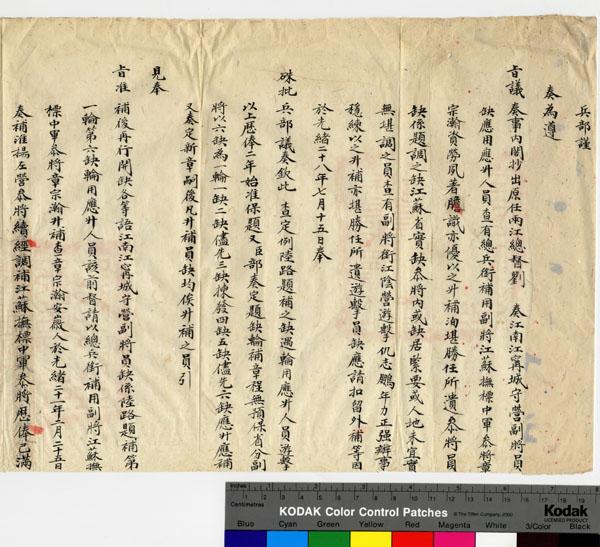 兵部謹
奏為遵
旨議奏事內閣抄出原任兩江總督劉　奏江南江寗城守營副將員
缺應用應升人員查有總兵銜補用副將江蘇撫標中軍叅將章
宗瀚資勞夙著膽識亦優以之升補洵堪勝任所遺叅將員
缺係題調之缺江蘇省實缺叅將內或缺居緊要或人地未宜實
無堪調之員查有副將銜江陰營遊擊仇志鵬年力正强辦事
穩練以之升補亦堪勝任所遺遊擊員缺應請扣留外補等因
於光緒二十八年七月十五日奉
硃批兵部議奏欽此　查定例陸路題補之缺遇輪用應升人員遊擊
以上歷俸二年始准保題又臣部奏定題缺輪補章程無預保省分副
將以六缺為一輪一缺二缺儘先三缺揀發四缺五缺儘先六缺應升應補
又奏定新章嗣後凡升補員缺均俟升補之員引
見奉
旨准補後再行開缺各等語江南江寗城守營副將員缺係陸路題補第
一輪第六缺輪用應升人員該前督請以總兵銜補用副將江蘇撫
標中軍叅將章宗瀚升補查章宗瀚安徽人於光緒二十一年二月二十五日
奏補淮揚左營叅將續經調補江蘇撫標中軍叅將歷俸已滿
inches
Centimetres
KODAK Color Control Patches
© The Tiffen Company, 2000
Kodak
LICENSED PRODUCT
Blue Cyan Green Yellow Red Magenta White 3/Color Black